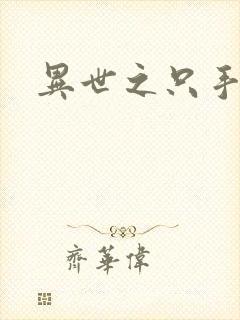 異世之只手
齊華偉